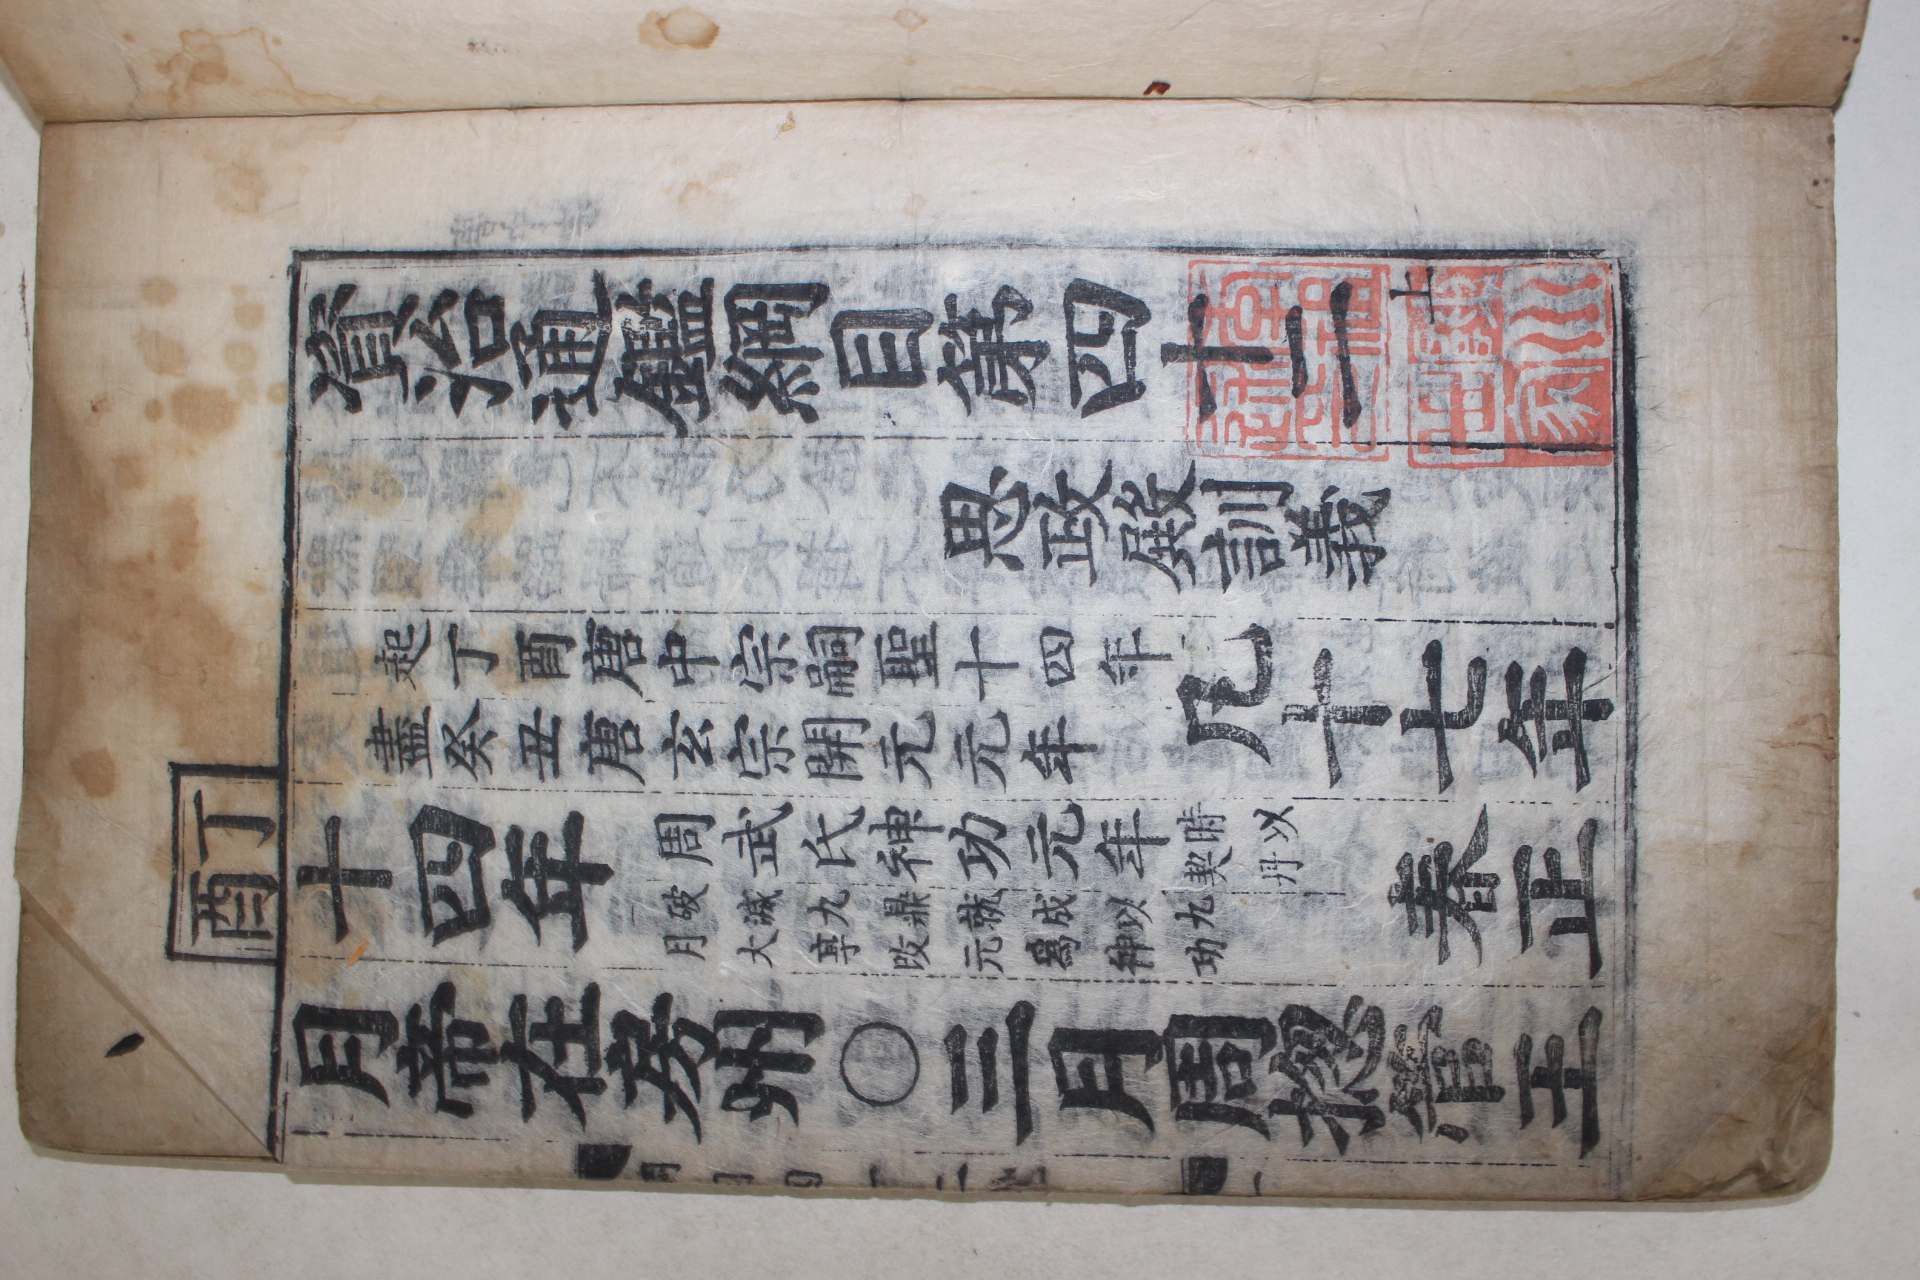 資治通鑑綱目第四十二上
思政殿訓義
起丁酉唐中宗嗣聖十四年
盡癸丑唐玄宗開元元年
凡十七年
丁酉
十四年
周武氏神功元年
時以
契丹
破滅九鼎就成以九
月大享改元爲神功
春正
月帝在房州○三月周揔管王